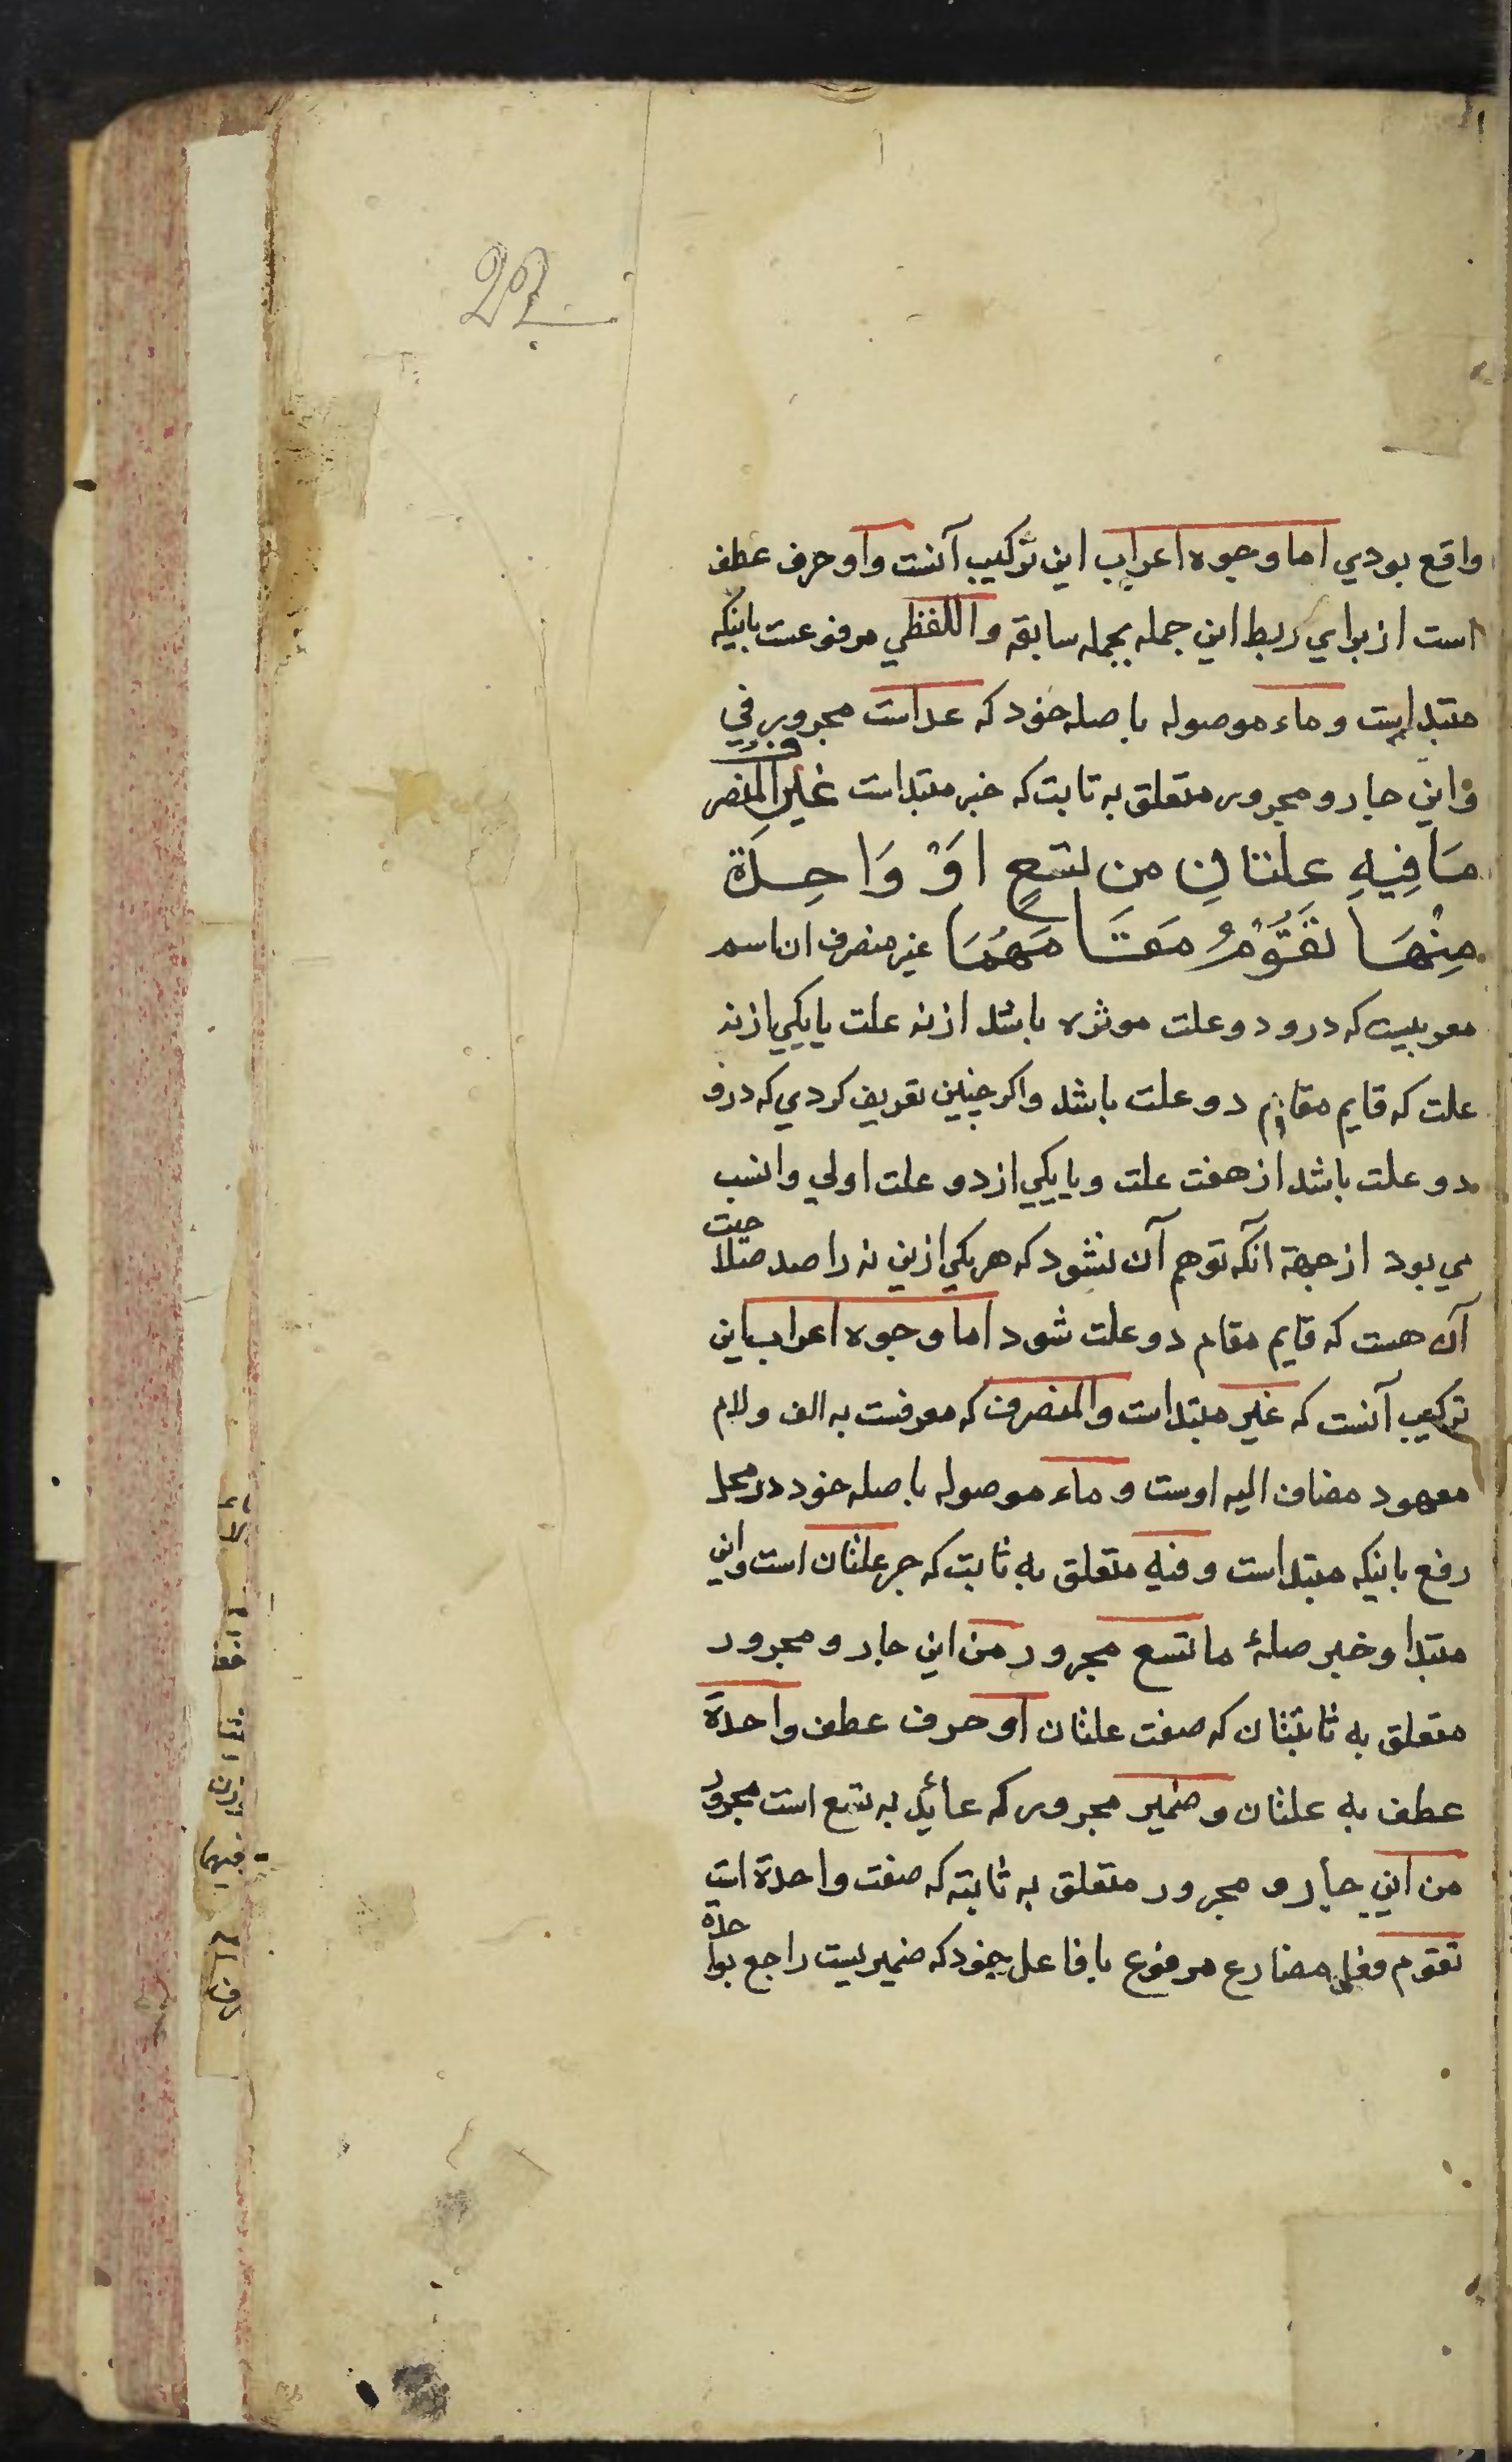 واقع بودي اما وجوه اعراب اين تركيب آنست واو حرف عطف
است از براي ربط اين جمله بجمله سابقه واللفظي مرفوعست باينكه
مبتداست وماء موصوله با صله خود كه عداست مجرور في
واين جار و مجرور متعلق به ثابت كه خبر مبتداست غَيرِ المنصرف
مَا فِيهِ علتانِ مِن تسعٍ اَوْ وَاحِدَة
مِنْهَا تَقُوْمُ مَقَامَهُمَا غير منصرف ان اسم
معربيست كه درو دو علت موثره باشد از نه علت يا يكي از نه
علت كه قايم مقام دو علت باشد واكر چنين تعريف كردي كه درو
دو علت باشد از هفت علت و يا يكي از دو علت اولي وانسب
مي بود از جهة انكه توهم آن نشود كه هر يكي ازين نه را صد صلاحيت
آن هست كه قايم مقام دو علت شود اما وجوه اعراب اين
تركيب آنست كه غير مبتداست والمنصرف كه معرفست به الف ولام
معهود مضاف اليه اوست و ماء موصوله با صله خود در محل
رفع باينكه مبتداست وفيه متعلق به ثابت كه خبر علتان است واين
مبتدا وخبر صلۀ ما تسع مجرور من اين جار و مجرور
متعلق به ثابتتان كه صفت علتان او حرف عطف واحدة
عطف به علتان وضمير مجرور كه عائد به تسع است مجرور
من اين جار و مجرور متعلق به ثابته كه صفت واحدة است
تقوم فعل مضارع مرفوع با فاعل خود كه ضميريست راجع بواحدة